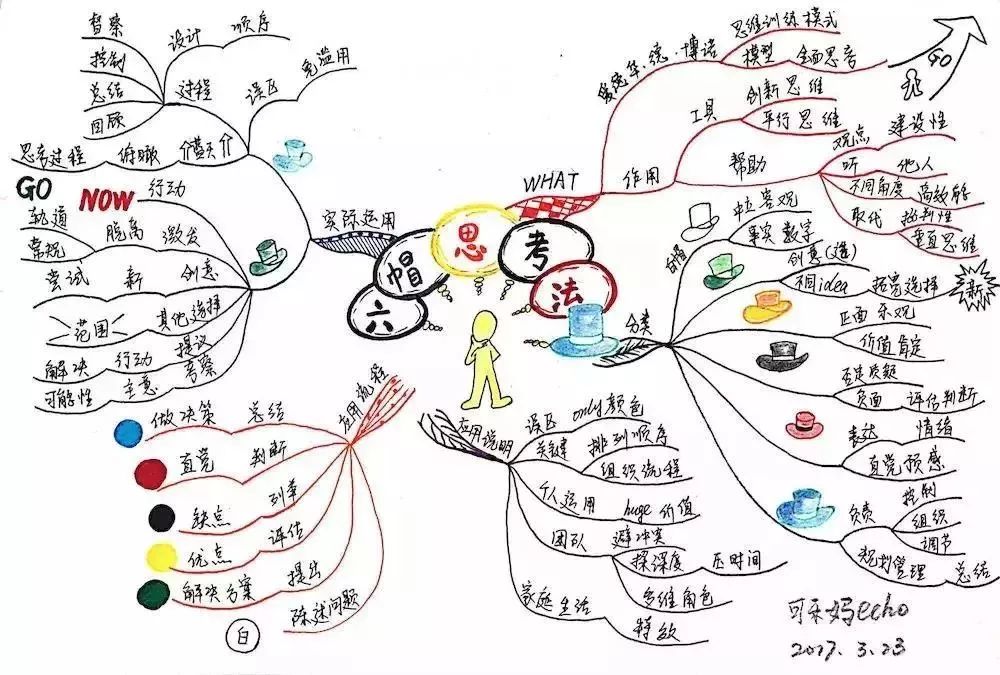 六帽思考法
WHAT
爱德华·德·博诺
思维训练模式
模型 全面思考
GO
作用
工具
创新思维
平行思维
帮助
观点 建设性
听 他人
不同角度 高效能
取代 批判性
垂直思维
分类
白帽
中立客观
事实 数字
创意(造)
不同idea 拓宽选择
新
正面 乐观
价值肯定
否定质疑
负面 评估判断
表达 情绪
直觉预感
负责
控制
组织
调节
规划管理 总结
应用说明
误区 only颜色
关键 排列顺序
组织流程
个人运用 huge价值
团队 避冲突
探深度 压时间
多维角色
家庭生活 特效
应用流程
陈述问题
白
提出 解决方案
评估 优点
列举 缺点
判断 直觉
总结 做决策
实际运用
误区 免滥用
过程
设计 顺序
督察
控制
总结
回顾
俯瞰 思考过程
GO
NOW
行动
激发 脱离
轨道
常规
创意 新 尝试
其他选择
范围
提议 行动 解决
考察 主意 可能性
可乐妈echo
2017.3.23